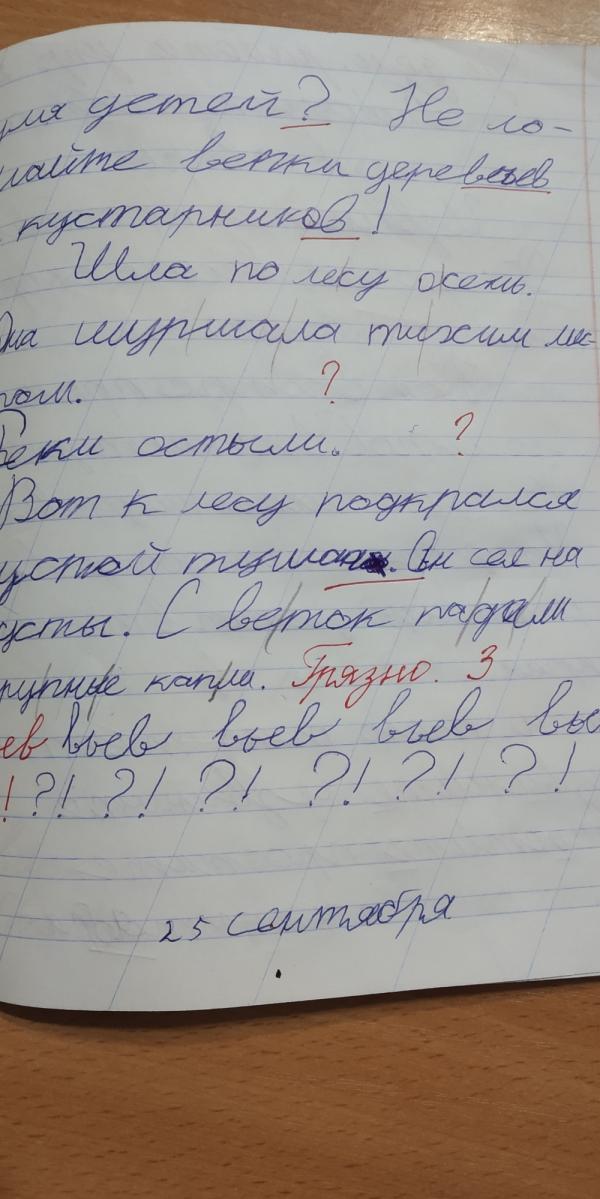 для детей? Не ло-
майте ветки деревьев
кустарников!
Шла по лесу осень.
Она шуршала тихим лис-
том.
?
Реки остыли. ?
Вот к лесу подкрался
густой туман. Он сел на
кусты. С веток падали
крупные капли. Грязно. 3
ев вьев вьев вьев вье
! ?! ?! ?! ?! ?! ?!
25 сентября